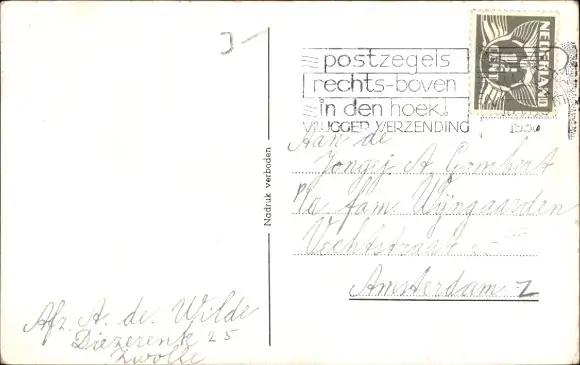 postzegels
rechts-boven
in den hoek!
VLUGGER VERZENDING
NEDERLAND
Nadruk verboden
Aan de
Jongej A Gombert
p/a fam Wijngaarden
Vechtstraat
Amsterdam Z
Afz. A. de Wilde
Diezerenk 25
Zwolle